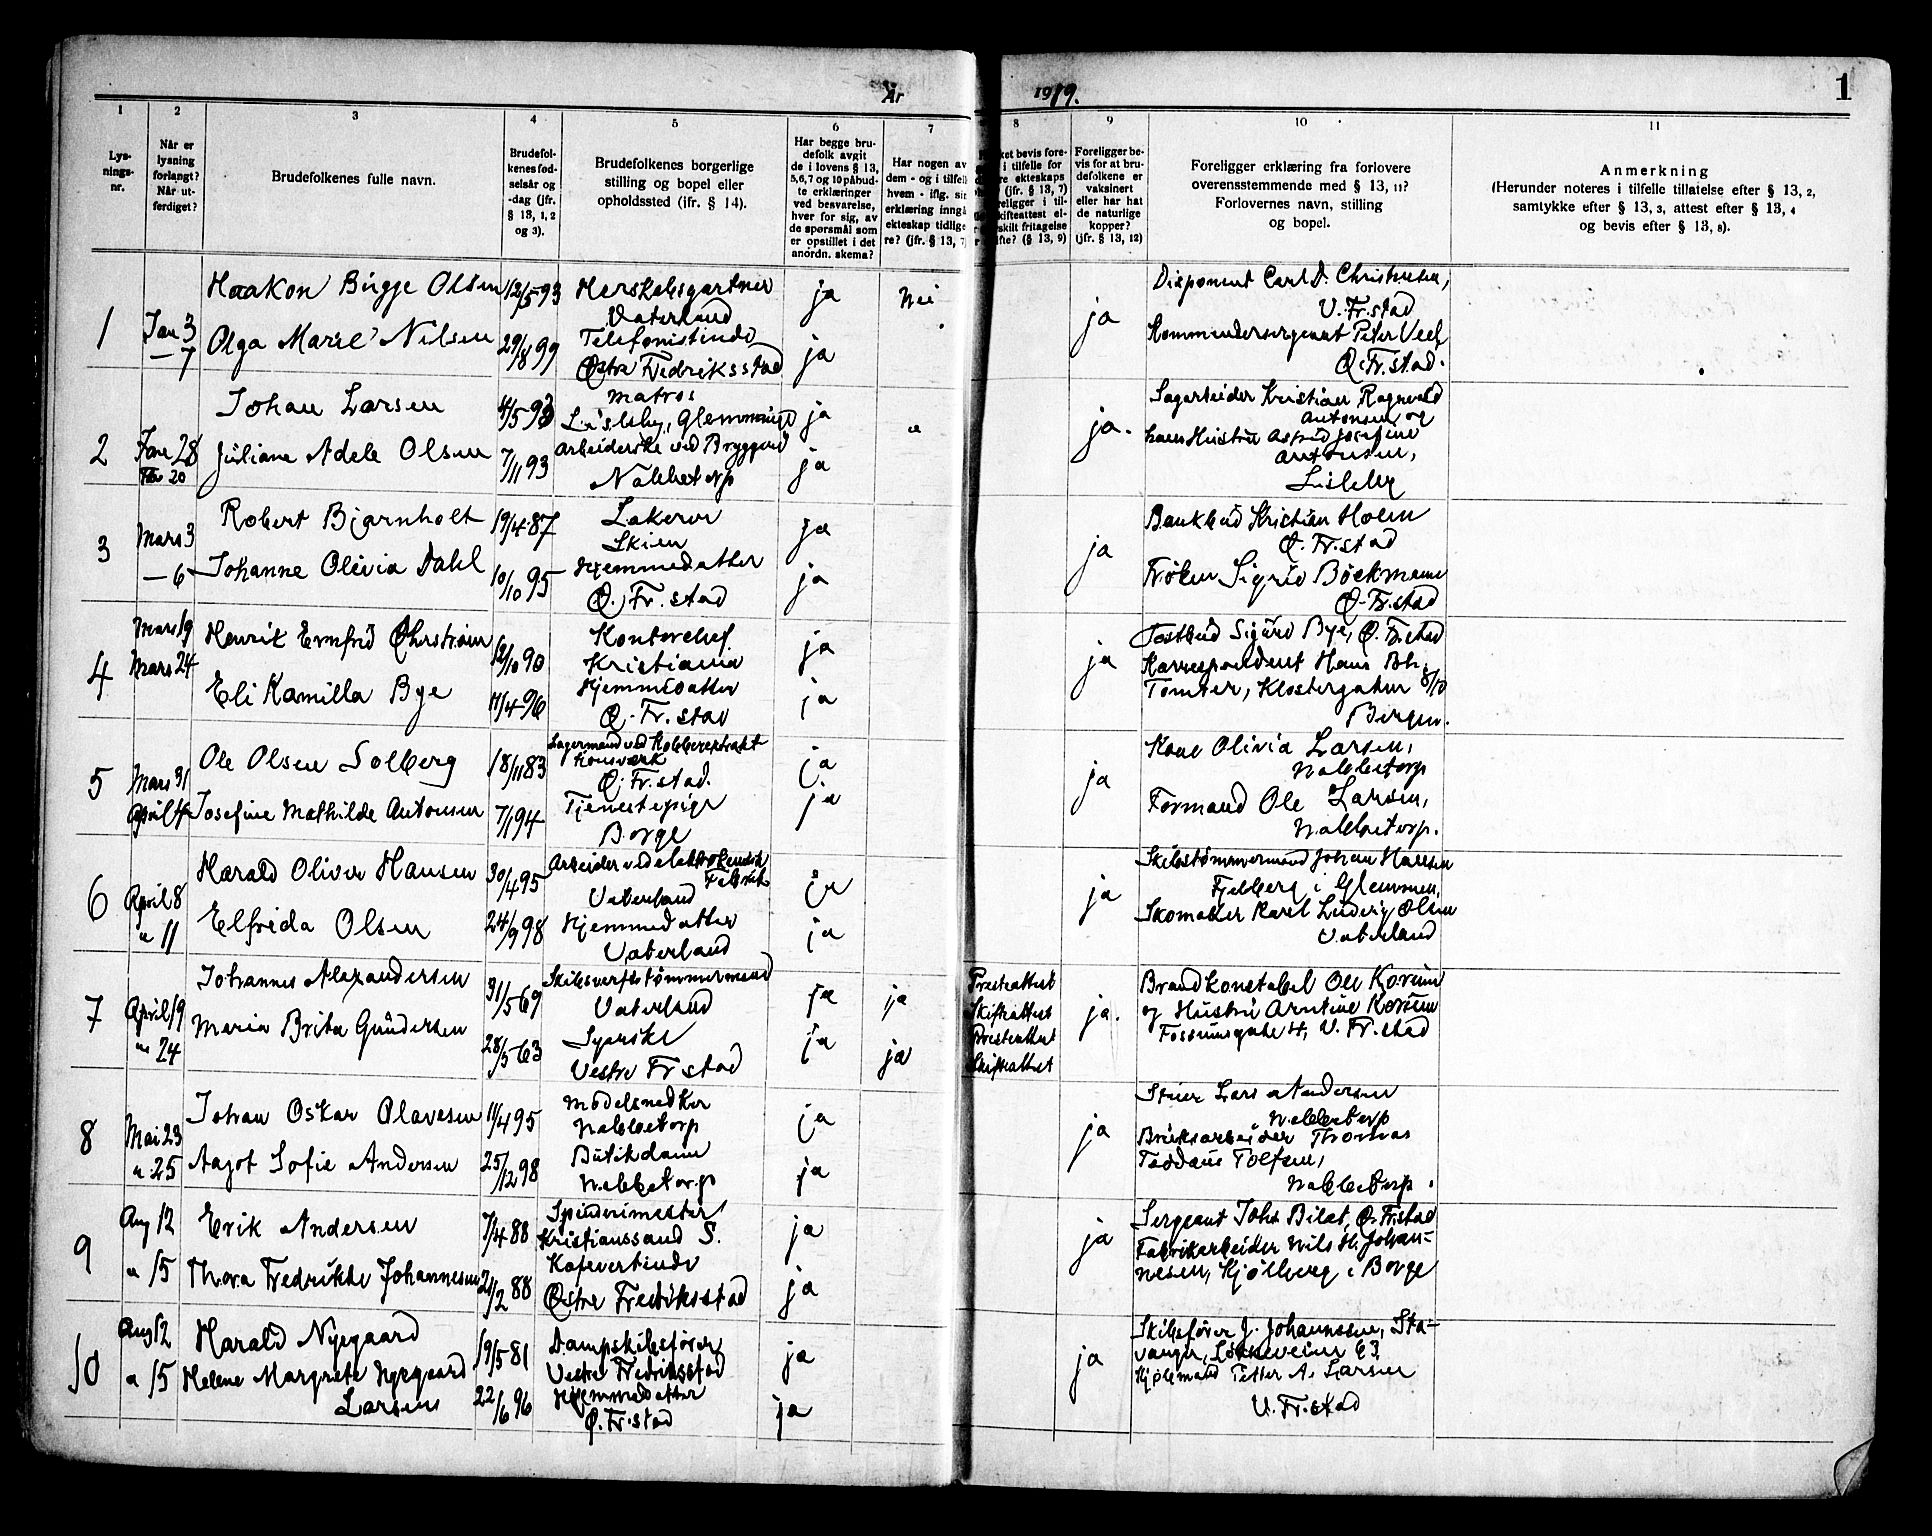 År 1919.
1
1
2
3
4
5
6
7
8
9
10
11
Lys-
nings-
nr.
Når er
lysning
forlangt?
Når ut-
ferdiget?
Brudefolkenes fulle navn.
Brudefol-
kenes fød-
selsår og
-dag (jfr.
§ 13, 1, 2
og 3).
Brudefolkenes borgerlige
stilling og bopel eller
opholdssted (ifr. § 14).
Har begge bru-
defolk avgit
de i lovens § 13,
5,6,7 og 10 påbud-
te erklæringer
ved besvarelse,
hver for sig, av
de spørsmål som
er opstillet i det
anordn. skema?
Har nogen av
dem - og i tilfell
hvem - iflg. sin
erklæring inngå
ekteskap tidlige
re? (jfr. § 13, 7
ket bevis fore-
i tilfelle for
re ekteskaps
(jfr. § 13, 7)
religger i til-
skifteattest el-
skilt fritagelse
fte? (§ 13, 9)
Foreligger be-
vis for at bru-
defolkene er
vaksinert
eller har hat
de naturlige
kopper?
(jfr. § 13, 12)
Foreligger erklæring fra forlovere
overensstemmende med § 13, 11?
Forlovernes navn, stilling
og bopel.
Anmerkning
(Herunder noteres i tilfelle tillatelse efter § 13, 2,
samtykke efter § 13, 3, attest efter § 13, 4
og bevis efter § 13, 8).
1
Jan 3
— 7
Haakon Bugge Olsen
12/5 93
Herskabsgartner
Vaterland
ja
Nei
Olga Marie Nilsen
29/8 99
Telefonistinde
Østre Fredriksstad
ja
ja
Disponent Carl D. Christensen,
V. Fr.stad
Kommandersergeant Peter Veel
Ø. Fr.stad.
2
Jan 28
20
Johan Larsen
4/5 93
Matros
Lisleby, Glemminge
ja
"
Juliane Adele Olsen
7/11 93
Arbeiderske ved Bryggeri
Nabbetorp
ja
ja.
Sagarbeider Kristian Ragnvald
Antonsen og
hans Hustru Astrid Josefine
Antonsen,
Lisleby
3
Mars 3
— 6
Robert Bjørnholt
19/4 87
Lakerer
Skien
ja
Johanne Olivia Dahl
10/10 95
Hjemmedatter
Ø. Fr. stad
ja
ja
Bankbud Kristian Holm
Ø. Fr.stad
Frøken Sigrid Böckmann
Ø. Fr.stad
4
Mars 19
Mars 24
Henrik Ermfrid Öhrstrøm
12/10 90
Kontorchef
Kristiania
ja
Eli Kamilla Bye
17/4 96
Hjemmedatter
Ø. Fr. stad
ja
ja
Postbud Sigurd Bye, Ø. Fr.stad
Korrespondent Hans Bh.
Tomter, Klostergaten 8/10
Bergen.
5
Mars 31
April 4
Ole Olsen Solberg
18/11 83
Lagermand ved Kobberextrakt
tionsværk
Ø. Fr. stad.
ja
Josefine Mathilde Antonsen
7/1 94
Tjenestepige
Borge
ja
ja
Kone Olivia Larsen,
Nabbetorp
Formand Ole Larsen,
Nabbetorp.
6
April 8
" 11
Harald Oliver Hansen
30/4 95
Arbeider ved elektrokemisk
Fabrik
Vaterland
ja
Elfrida Olsen
24/9 98
Hjemmedatter
Vaterland
ja
ja
Skibstømmermand Johan Hansen
Fjelberg i Glemmen,
Skomaker Karel Ludvig Olsen
Vaterland
7
April 19
" 24
Johannes Alexandersen
31/5 69
Skibsverftstømmermand
Vaterland
ja
ja
Maria Brita Gundersen
28/5 63
Syerske
Vestre Fr stad
ja
ja
Presteattest
Skifteattest
Presteattest
Skifteattest
ja.
Brandkonstabel Ole Korsun
og Hustru Arntine Korsun
Fossumsgate 4, V. Fr. stad
8
Mai 23
" 25
Johan Oskar Olavesen
11/4 95
Modelsnedker
Nabbetorp
ja
Aagot Sofie Andersen
25/12 98
Butikdame
Nabbetorp
ja
ja
Stuer Lars Andersen
Nabbetorp
Bruksarbeider Thomas
Taddæus Tolfsen,
Nabbetorp.
9
Aug 12
" 15
Erik Andersen
7/4 88
Spinderimester
Kristianssand S.
ja
Thora Fredrikke Johannesen
21/2 88
Kafevertinde
Østre Fredriksstad
ja
ja
Sergeant Johs Bilet, Ø. Fr.stad
Fabrikarbeider Nils H. Johan-
nesen, Kjølberg i Borge
10
Aug 12
" 15
Harald Nygaard
19/5 81
Dampskibsfører
Vestre Fredriksstad
ja
Helene Margrete Nygaard
Larsen
22/6 96
Hjemmedatter
Ø. Fr.stad
ja
ja
Skibsfører J. Johannssen, Sta-
vanger, Løkkeveien 63
Kjøbmand Petter A. Larsen
V. Fr.stad